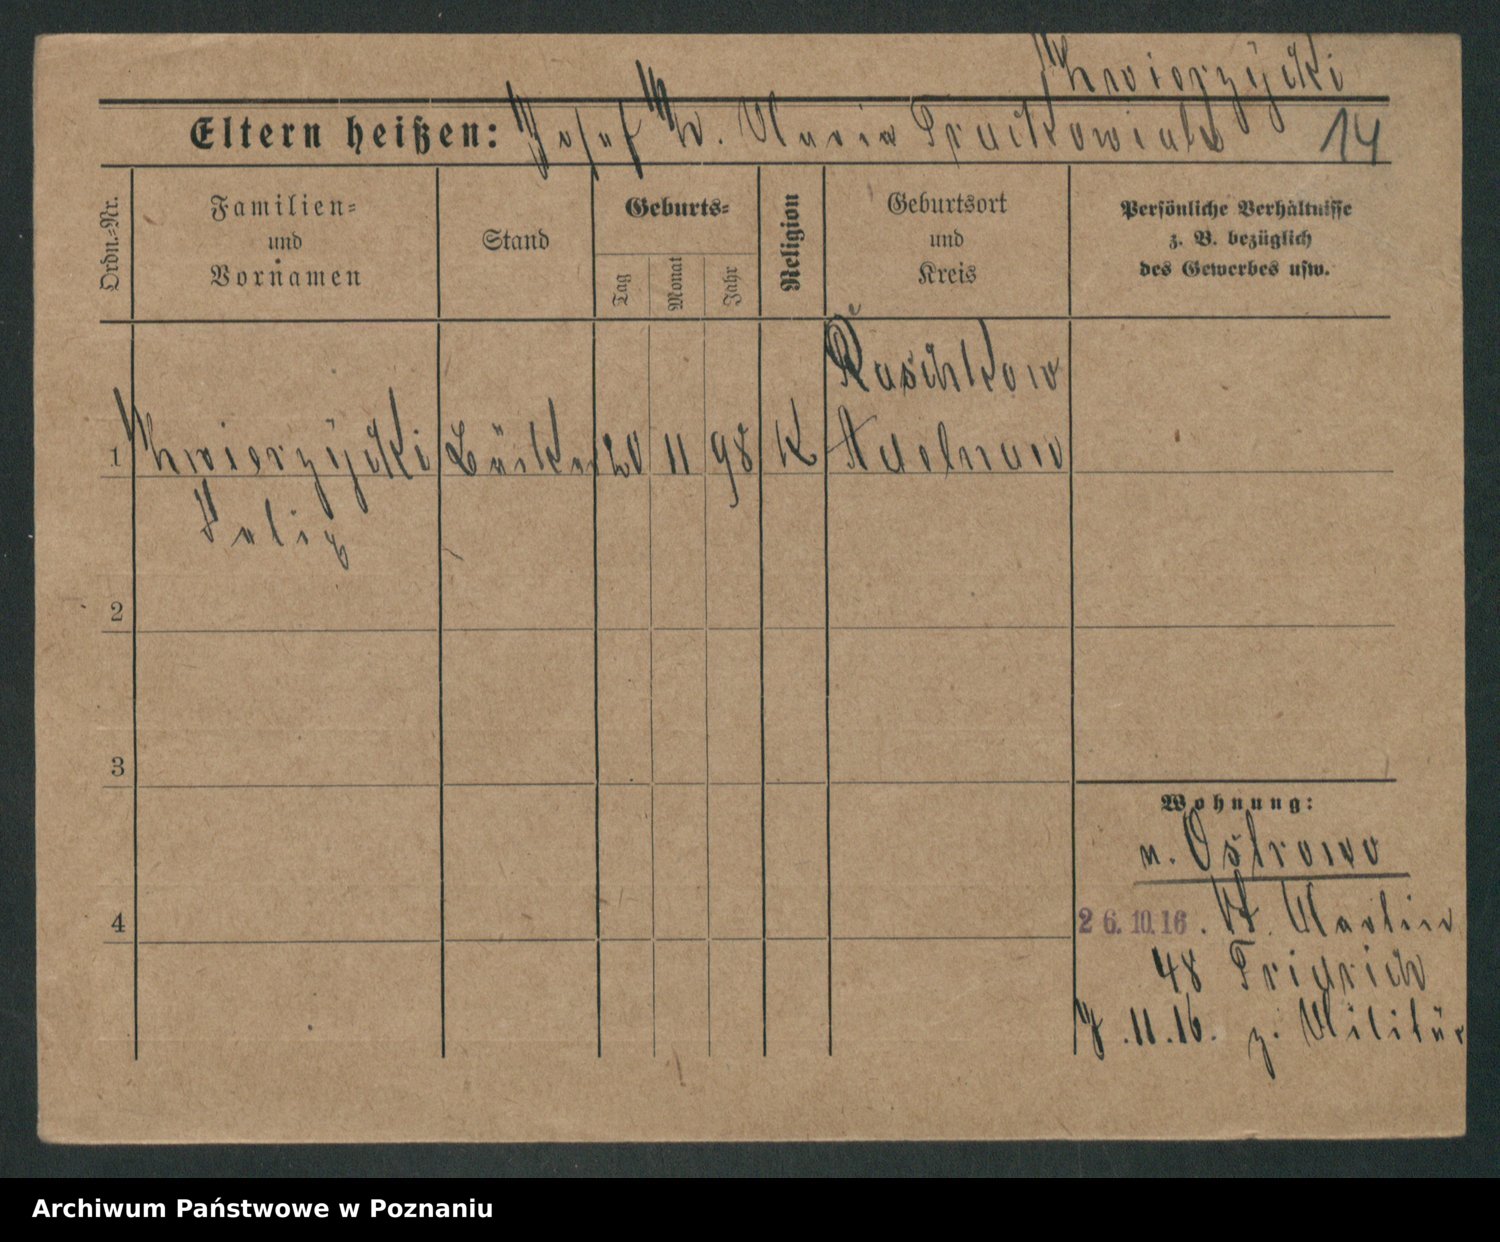 Zwierzÿcki
Eltern heißen: Josef Zw. Maria Frackowiak 14
Ordn.-Nr.
Familien-
und
Vornamen
Stand
Geburts-
Tag
Monat
Jahr
Religion
Geburtsort
und
Kreis
Persönliche Verhältnisse
z. B. bezüglich
des Gewerbes usw.
Raschkow
1 Zwierzÿcki Bäcker 20 11 98 K Adelnau
Felix
2
3
4
Wohnung:
n. Ostrowo
26.10.16. St. Martin
48
7.11.16. z. Militär
Archiwum Państwowe w Poznaniu